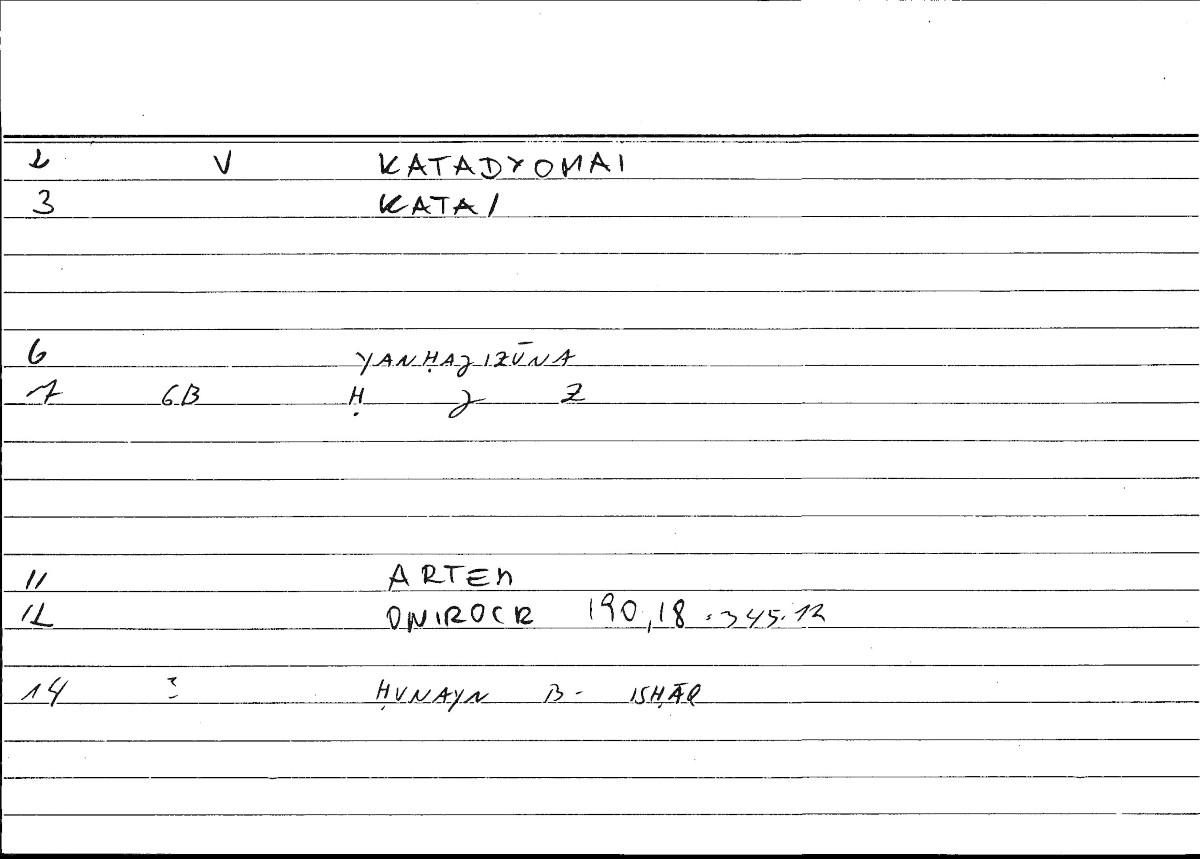 2 V KATADYOMAI
3 KATAI
6 YANḤAǦIZŪNA
7 GB Ḥ Ǧ Z
11 ARTEM
12 ONIROCR 190,18 = 345.12
14 HUNAYN B- ISḤĀQ